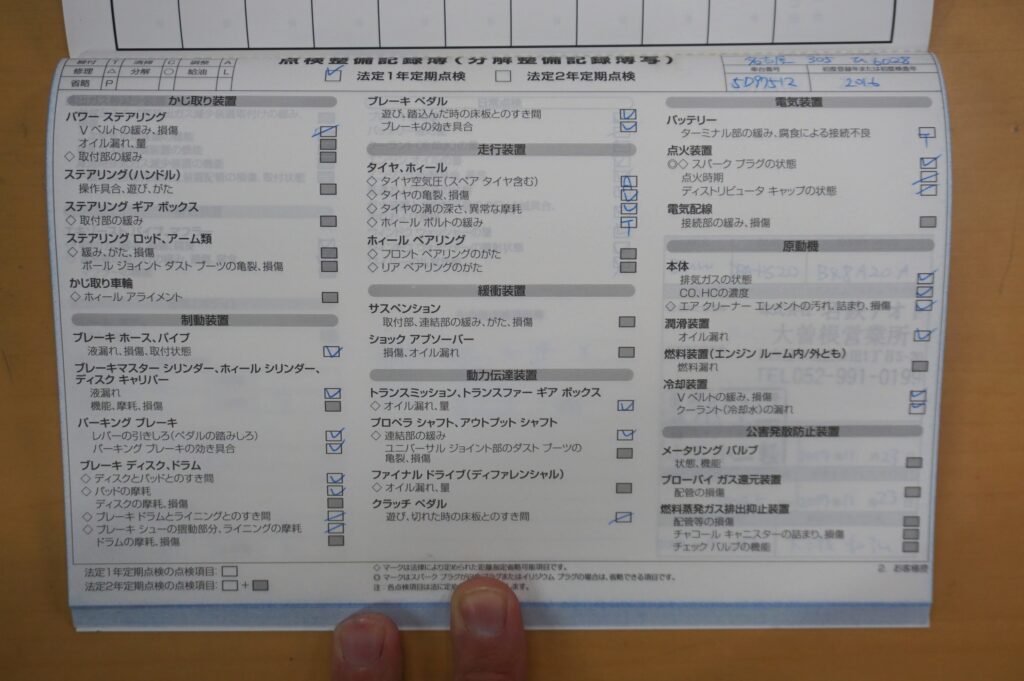 点検整備記録簿(分解整備記録簿写)
締付 T 清掃 C 調整 A
修理 △ 分解 ○ 給油 L
省略 P
法定1年定期点検 法定2年定期点検
名古屋 305
車台番号 初度登録年または初度検査年
5D97512 2016
かじ取り装置
パワー ステアリング
V ベルトの緩み、損傷
オイル漏れ、量
◇ 取付部の緩み
ステアリング(ハンドル)
操作具合、遊び、がた
ステアリング ギア ボックス
◇ 取付部の緩み
ステアリング ロッド、アーム類
◇ 緩み、がた、損傷
ボール ジョイント ダスト ブーツの亀裂、損傷
かじ取り車輪
◇ ホィール アライメント
制動装置
ブレーキ ホース、パイプ
液漏れ、損傷、取付状態
ブレーキマスター シリンダー、ホィール シリンダー、
ディスク キャリパー
液漏れ
機能、摩耗、損傷
パーキング ブレーキ
レバーの引きしろ(ペダルの踏みしろ)
パーキング ブレーキの効き具合
ブレーキ ディスク、ドラム
◇ ディスクとパッドとのすき間
◇ パッドの摩耗
ディスクの摩耗、損傷
◇ ブレーキ ドラムとライニングとのすき間
◇ ブレーキ シューの摺動部分、ライニングの摩耗
ドラムの摩耗、損傷
ブレーキ ペダル
遊び、踏込んだ時の床板とのすき間
ブレーキの効き具合
走行装置
タイヤ、ホィール
◇ タイヤ空気圧(スペア タイヤ含む) A
◇ タイヤの亀裂、損傷
◇ タイヤの溝の深さ、異常な摩耗
◇ ホィール ボルトの緩み T
ホィール ベアリング
◇ フロント ベアリングのがた
◇ リア ベアリングのがた
緩衝装置
サスペンション
取付部、連結部の緩み、がた、損傷
ショック アブソーバー
損傷、オイル漏れ
動力伝達装置
トランスミッション、トランスファー ギア ボックス
◇ オイル漏れ、量
プロペラ シャフト、アウトプット シャフト
◇ 連結部の緩み
ユニバーサル ジョイント部のダスト ブーツの
亀裂、損傷
ファイナル ドライブ(ディファレンシャル)
◇ オイル漏れ、量
クラッチ ペダル
遊び、切れた時の床板とのすき間
電気装置
バッテリー
ターミナル部の緩み、腐食による接続不良 T
点火装置
◎◇ スパーク プラグの状態
点火時期
ディストリビュータ キャップの状態
電気配線
接続部の緩み、損傷
原動機
本体
排気ガスの状態
CO、HCの濃度
◇ エア クリーナー エレメントの汚れ、詰まり、損傷
潤滑装置
オイル漏れ
燃料装置(エンジン ルーム内/外とも)
燃料漏れ
冷却装置
V ベルトの緩み、損傷
クーラント(冷却水)の漏れ
公害発散防止装置
メータリング バルブ
状態、機能
ブローバイ ガス還元装置
配管の損傷
燃料蒸発ガス排出抑止装置
配管等の損傷
チャコール キャニスターの詰まり、損傷
チェック バルブの機能
法定1年定期点検の点検項目:
法定2年定期点検の点検項目: +
◇ マークは法律により定められた距離指定省略可能項目です。
◎ マークはスパーク プラグが プラグまたはイリジウム プラグの場合は、省略できる項目です。
注:各点検項目は法に定め す。
2. お客様控